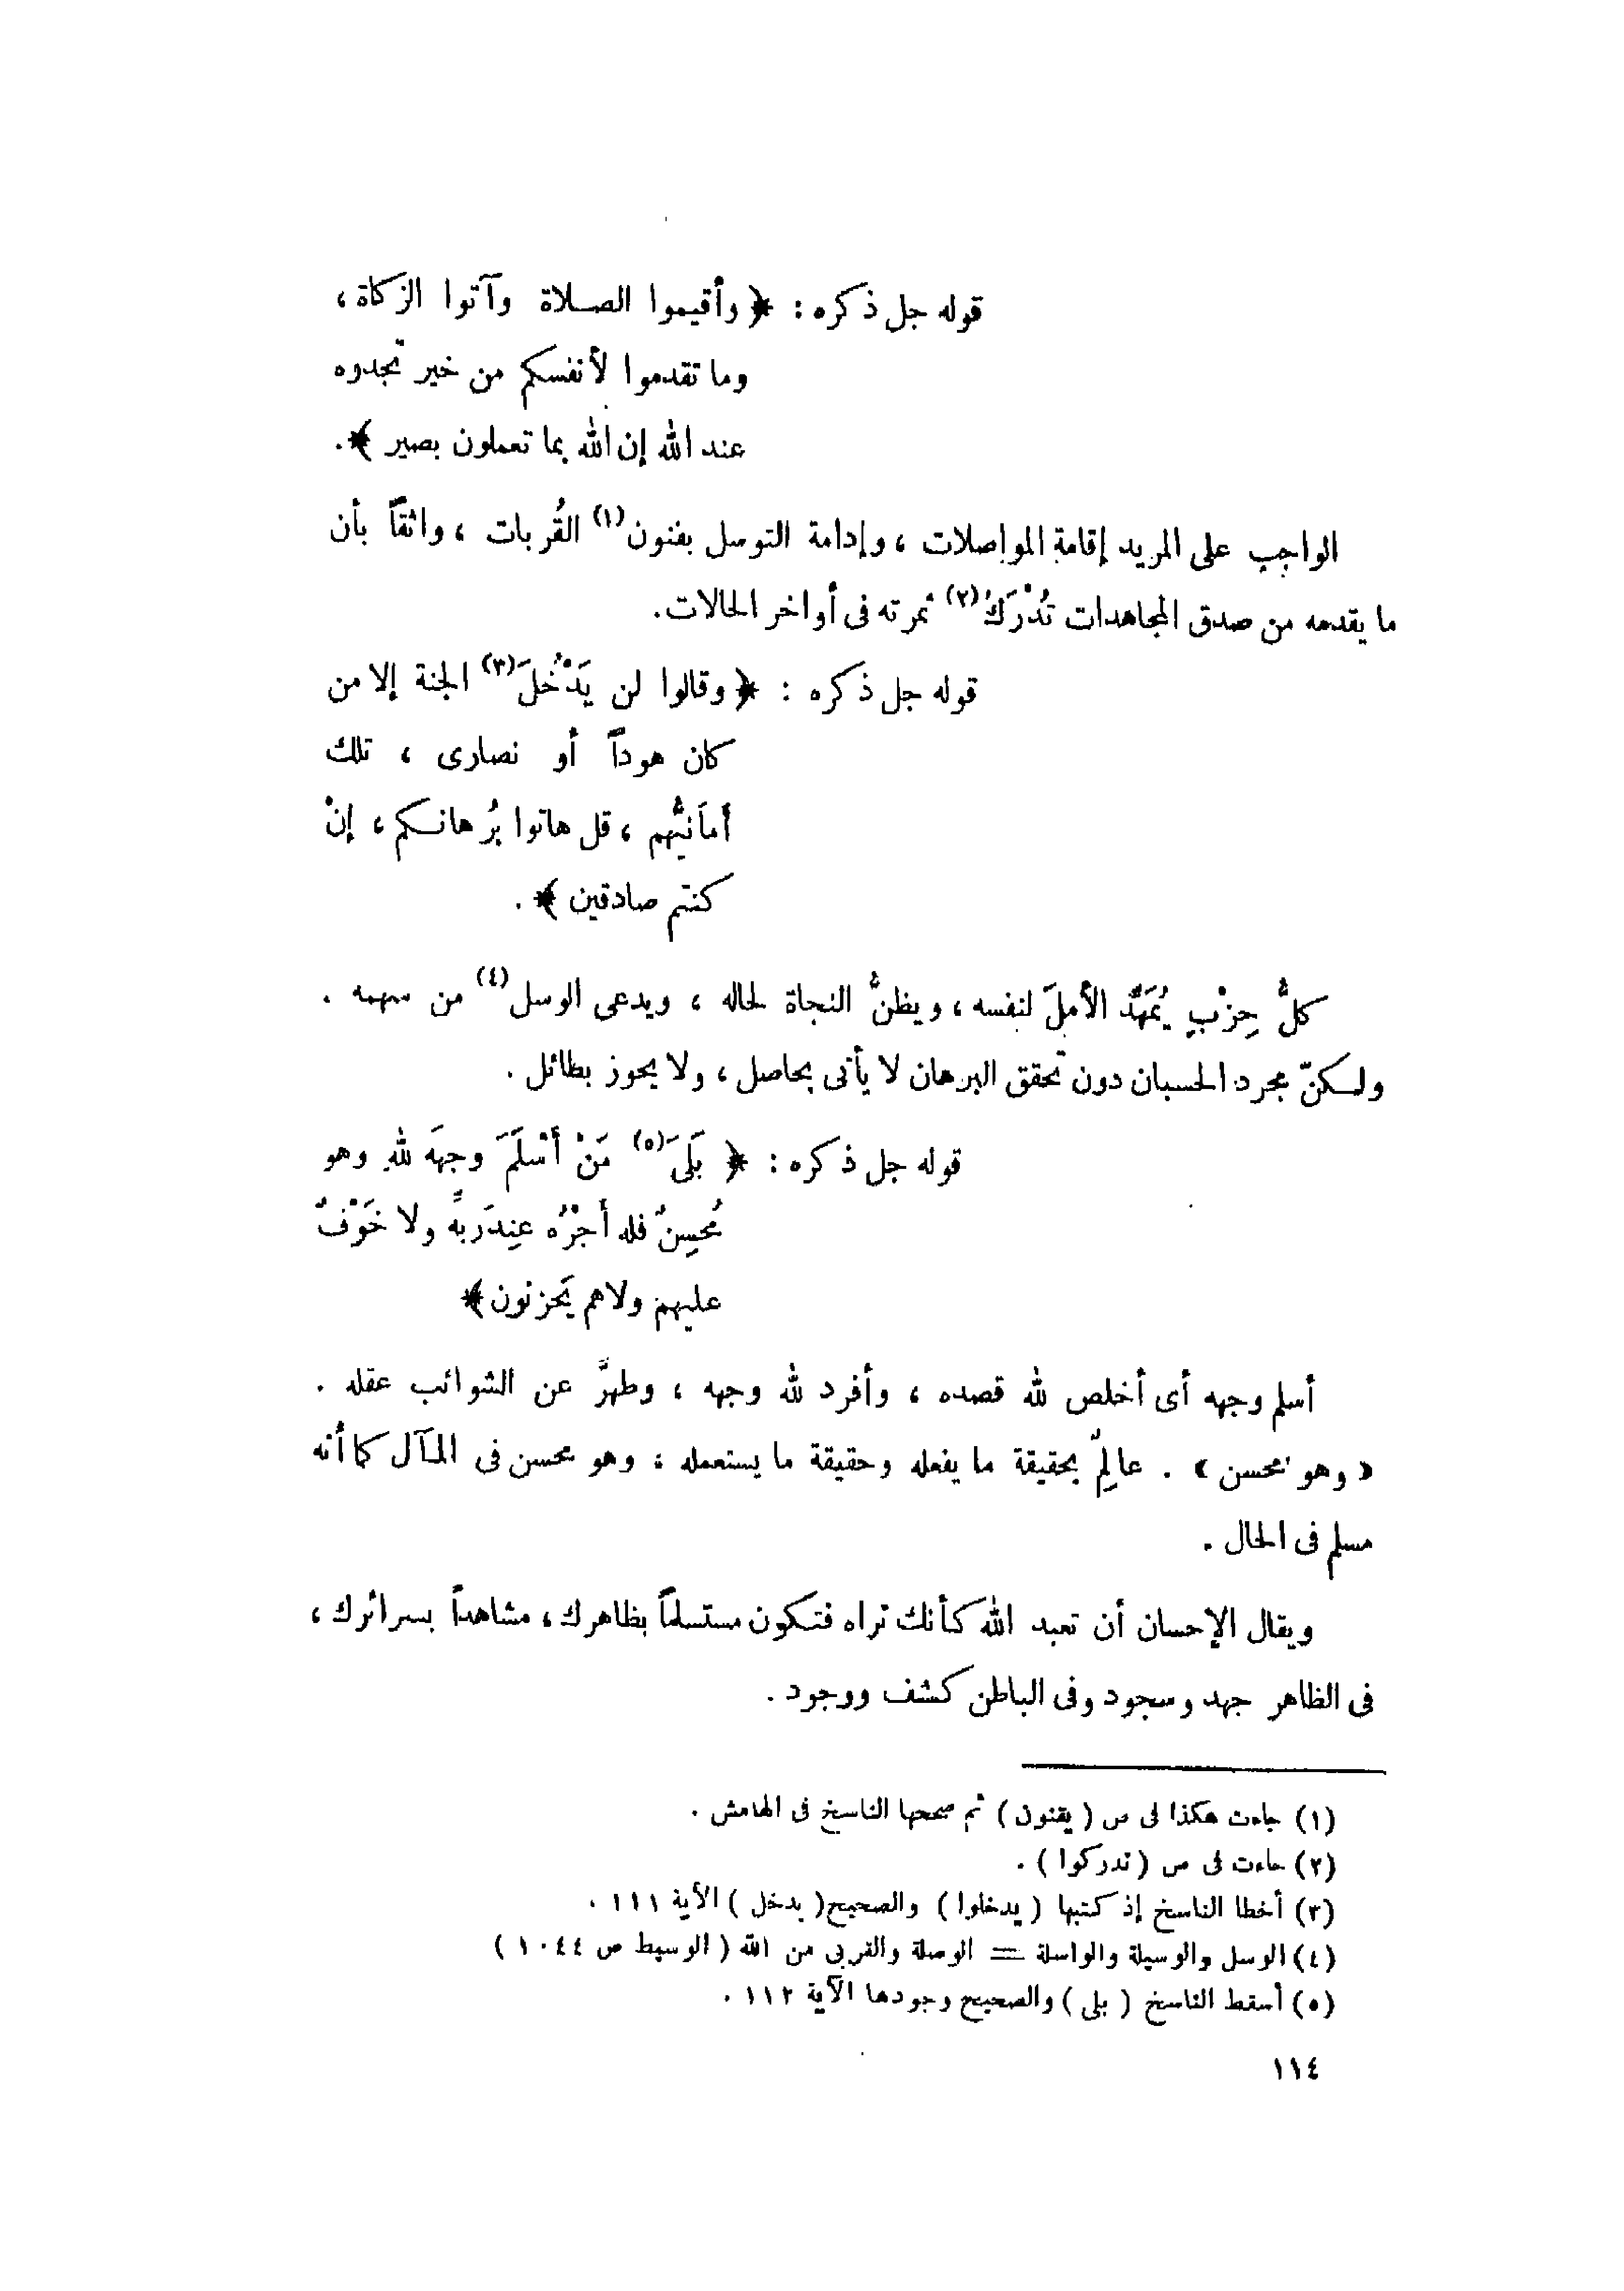 قوله جل ذكره : ﴿ وأقيموا الصلاة وآتوا الزكاة ،
وما تقدموا لأنفسكم من خير تجدوه
عند الله إن الله بما تعملون بصير ﴾ .
الواجب على المريد إقامة المواصلات ، وإدامة التوسل بفنون (١) القُربات ، واثقاً بأن
ما يقدمه من صدق المجاهدات تُدْرَكُ (٢) ثمرته فى أواخر الحالات .
قوله جل ذكره : ﴿ وقالوا لن يَدْخُلَ (٣) الجنة إلا من
كان هوداً أو نصارى ، تلك
أمَانيُّهم ، قل هاتوا بُرهانكم ، إنْ
كنتم صادقين ﴾ .
كلُّ حِزْبٍ يُمَهِّد الأملَ لنفسه ، ويظنُّ النجاة لحاله ، ويدعى الوسل (٤) من سهمه .
ولكنّ مجرد الحسبان دون تحقق البرهان لا يأتى بحاصل ، ولا يحوز بطائل .
قوله جل ذكره : ﴿ بَلَى (٥) مَنْ أَسْلَمَ وجهَه للهِ وهو
مُحسِنٌ فله أجْرُه عِندَ ربِّه ولا خَوْفٌ
عليهم ولا هم يَحزنون ﴾
أسلم وجهه أى أخلص لله قصده ، وأفرد لله وجهه ، وطهَّر عن الشوائب عقله .
« وهو محسن » . عالِمٌ بحقيقة ما يفعله وحقيقة ما يستعمله ، وهو محسن فى المآل كما أنه
مسلم فى الحال .
ويقال الإحسان أن تعبد الله كأنك تراه فتكون مستسلماً بظاهرك ، مشاهداً بسرائرك ،
فى الظاهر جهد وسجود وفى الباطن كشف ووجود .
(١) جاءت هكذا فى ص ( يقنون ) ثم صححها الناسخ فى الهامش .
(٢) جاءت فى ص ( تدركوا ) .
(٣) أخطا الناسخ إذ كتبها ( يدخلوا ) والصحيح ( يدخل ) الآية ١١١ .
(٤) الوسل والوسيلة والواسلة = الوصلة والقربى من الله ( الوسيط ص ١٠٤٤ )
(٥) أسقط الناسخ ( بلى ) والصحيح وجودها الآية ١١٢ .
١١٤